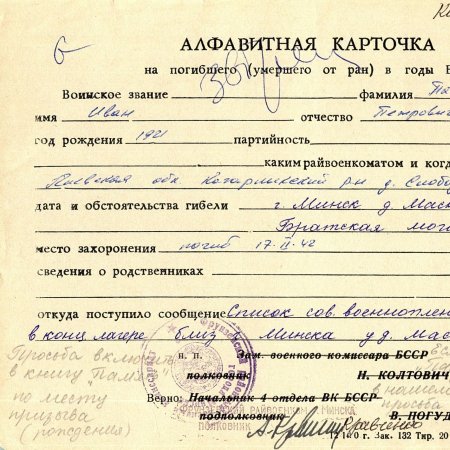 АЛФАВИТНАЯ КАРТОЧКА
на погибшего (умершего от ран) в годы В
Воинское звание фамилия Па
имя Иван отчество Петрович
год рождения 1921 партийность
каким райвоенкоматом и когд
Киевская обл. Кагарлыкский р-н д. Слобо
дата и обстоятельства гибели г. Минск д. Мас
Братская мог
место захоронения погиб 17.II.42
сведения о родственниках
откуда поступило сообщение Список сов. военноплен
в конц. лагере близ Минска у д. Мас
Просьба включить
в книгу "Память"
по месту
призыва
(рождения)
п. п. Зам. военного комиссара БССР
полковник Н. КОЛТОВИЧ
Верно: Начальник 4 отдела ВК БССР
ФРУНЗЕНСКИЙ РАЙВОЕНКОМ г. МИНСКА
подполковник В. ПОГУД
ПОЛКОВНИК
Кравченко
12140 г. Зак. 132 Тир. 20